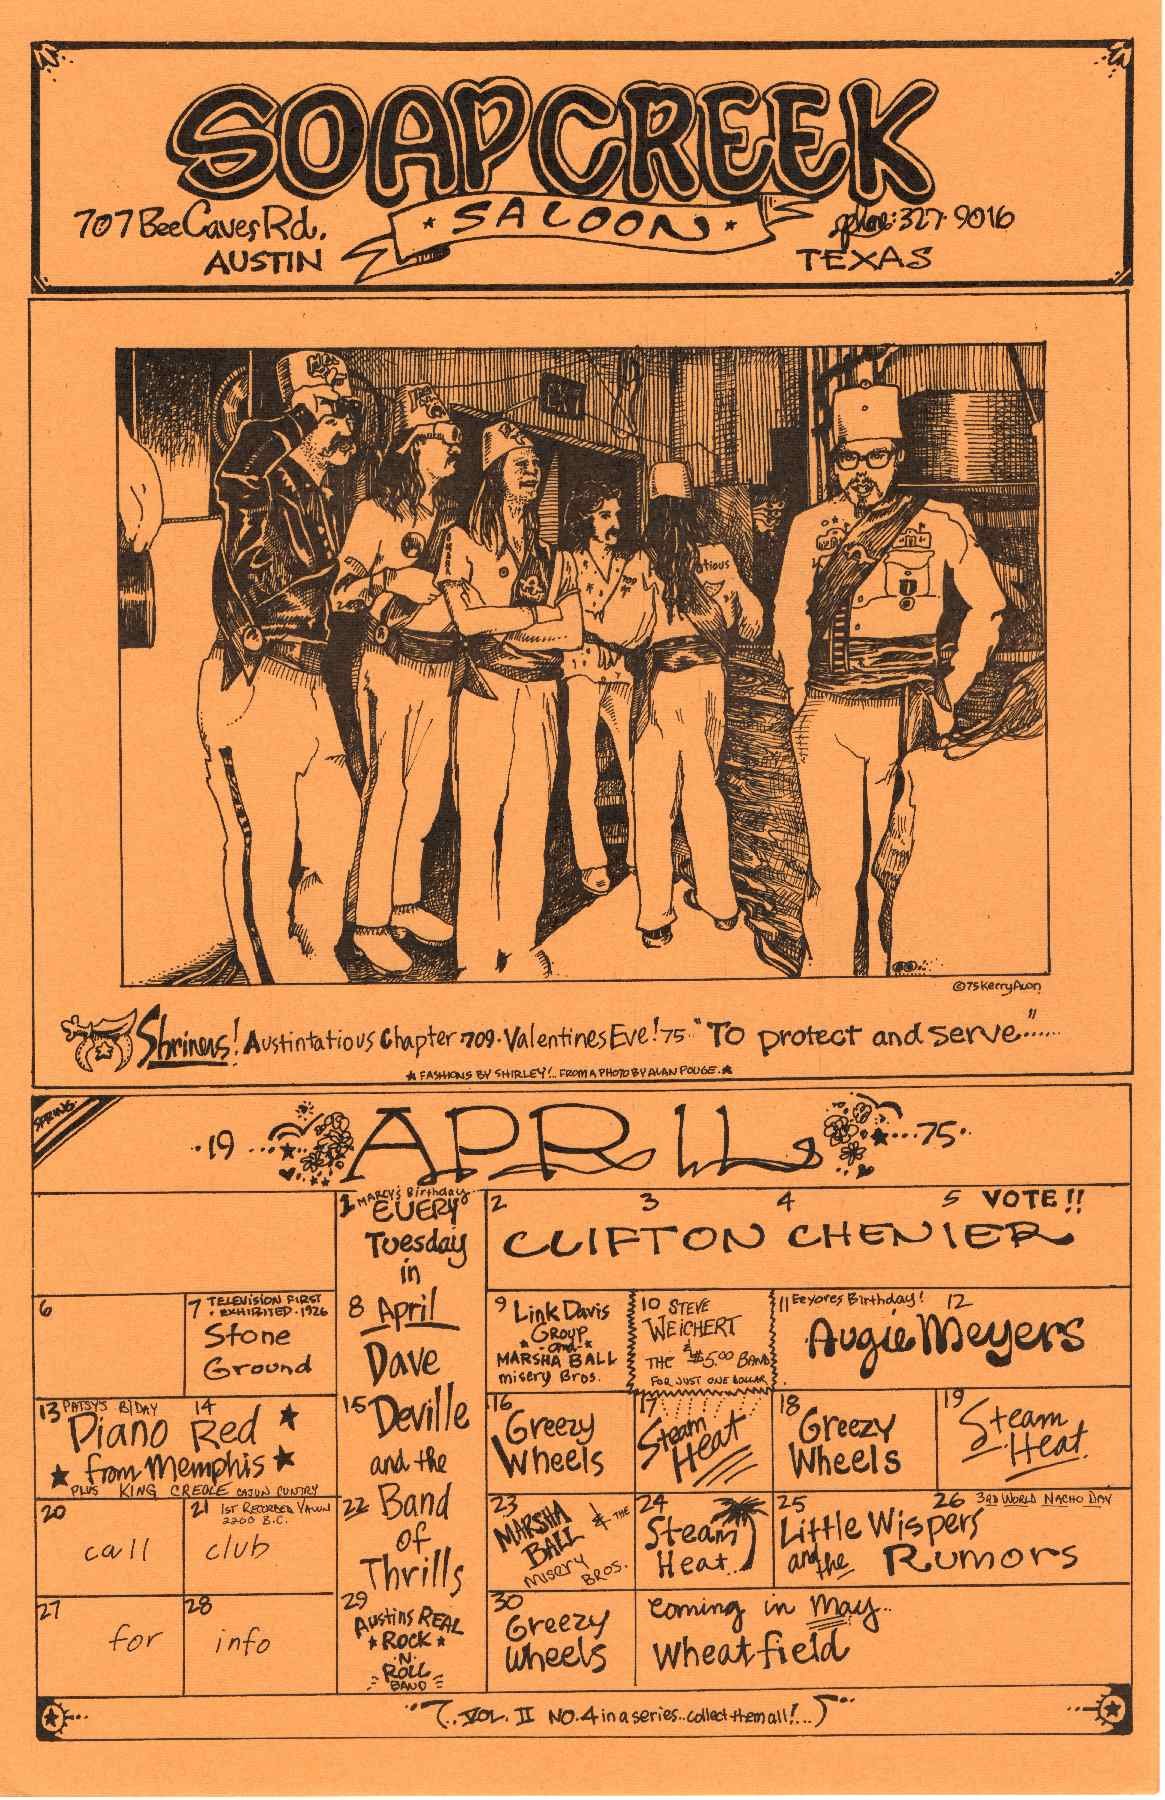 SOAP CREEK
SALOON
707 Bee Caves Rd.
AUSTIN
phone: 327-9016
TEXAS
tious
©75 Kerry Awn
Shriners! Austintatious Chapter 709. Valentines Eve! 75 "To protect and serve"......
★ FASHIONS BY SHIRLEY!.. FROM A PHOTO BY ALAN POUGE. ★
SPRING
·19 APRIL 75·
1 MARCY'S Birthday
EVERY
Tuesday
in
8 April
Dave
15 Deville
and the
22 Band
of
Thrills
29 Austins REAL
★ ROCK ★
·N·
ROLL
BAND
2 3 4 5 VOTE!!
CLIFTON CHENIER
6
7 TELEVISION FIRST
EXHIBITED · 1926
Stone
Ground
9 Link Davis
Group
★ -and- ★
MARSHA BALL
misery Bros.
10 STEVE
WEICHERT
&
THE $5.00 BAND
FOR JUST ONE DOLLAR
11 Eeyores Birthday! 12
Augie Meyers
13 PATSY'S B/DAY 14
Piano Red
from Memphis
PLUS KING CREOLE CAJUN CUNTRY
16
Greezy
Wheels
17
Steam
Heat
18
Greezy
Wheels
19
Steam
Heat
20
call
21 1ST RECORDED YAWN
2200 B.C.
club
23
MARSHA
BALL
& THE
MISERY
BROS.
24
Steam
Heat
25 26 3RD WORLD NACHO DAY
Little Wispers
and the Rumors
27
for
28
info
30
Greezy
Wheels
coming in May..
Wheatfield
(.. VOL. II NO. 4 in a series.. collect them all!...)